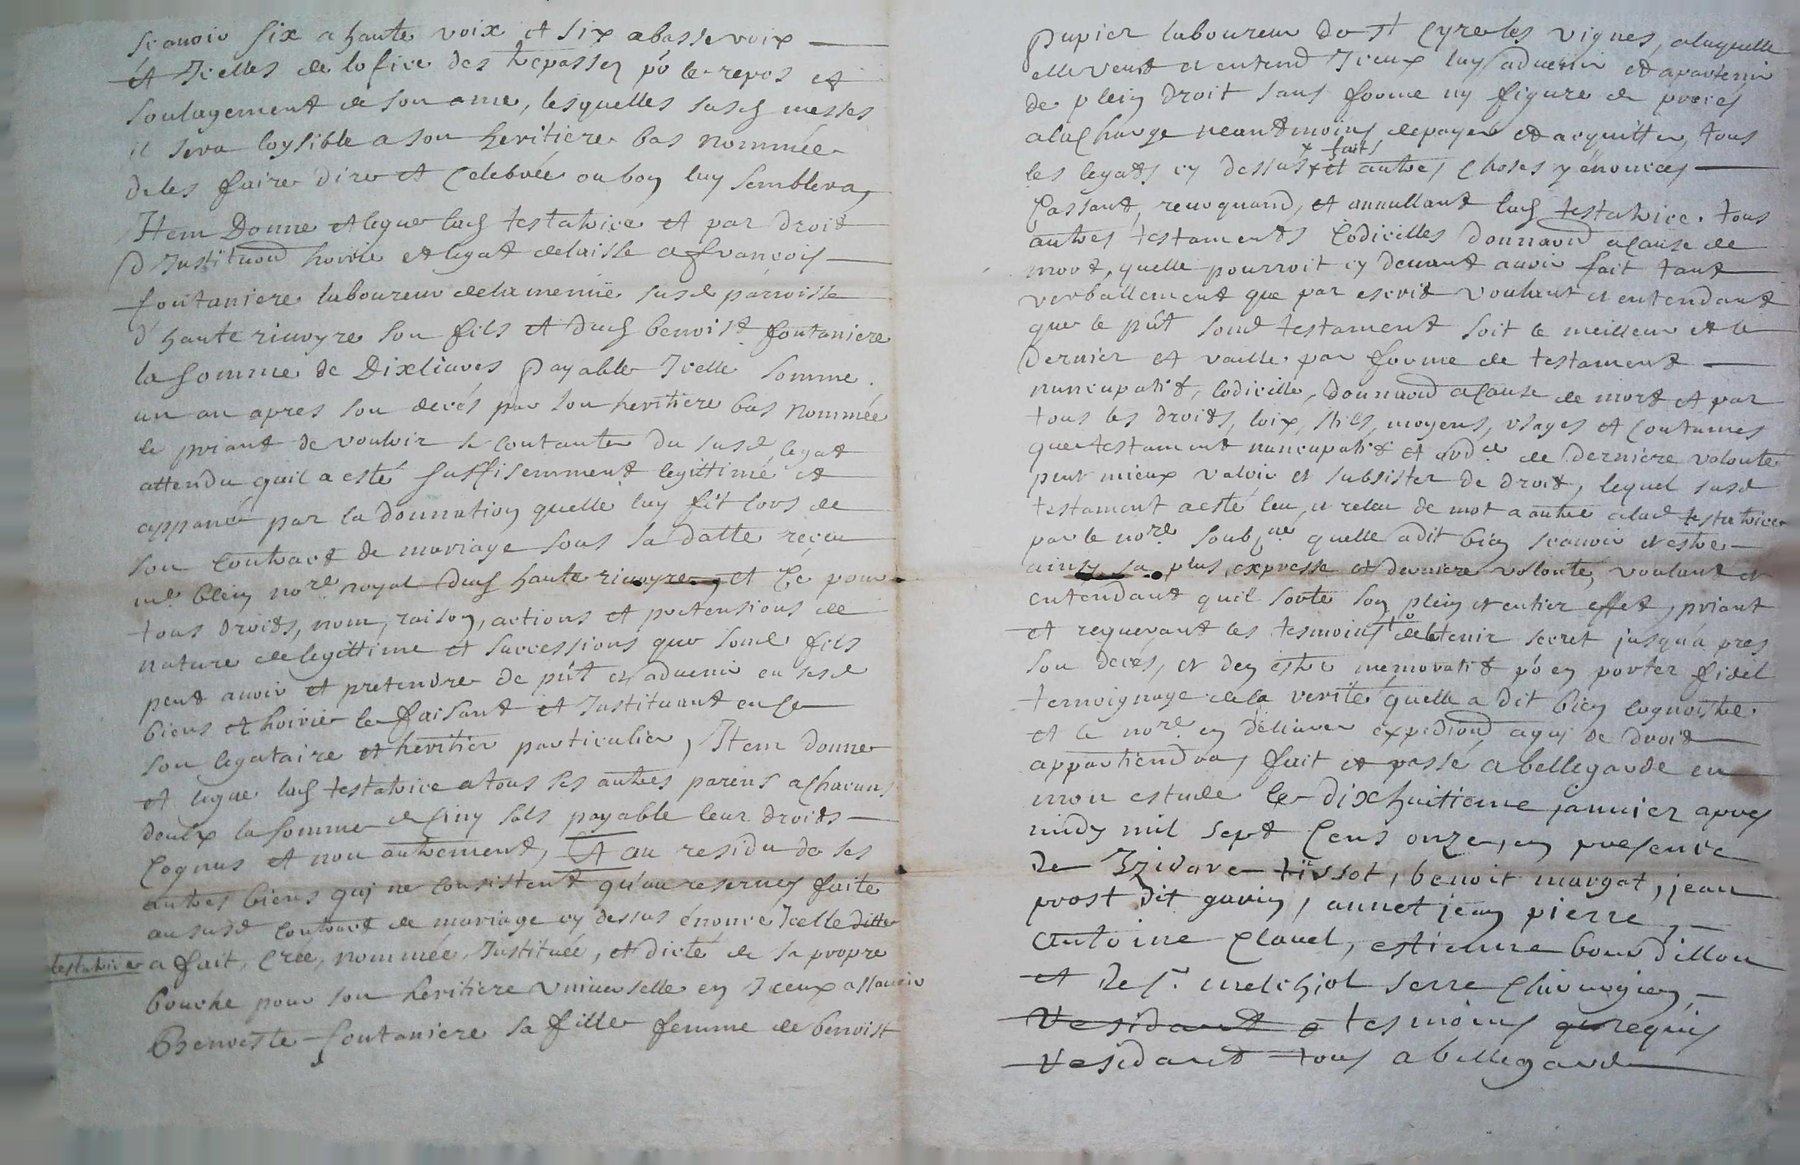 scavoir six a haute voix et six abasse voix
et Icelles de lofice des trepassez po le repos et
soulagement de son ame, lesquelles susd messes
il sera loysible a son heritiere bas nommée
de les faire dire et celebrée ou bon luy semblera,
Item Donne et legue lad testatrice et par droit
d Institution hoirie et legat delaisse a françois
fontaniere laboureur de la meme susd parroisse
d'haute rivoyre son fils et dud benoist fontaniere
la somme de Dix livres payable Icelle somme
un an apres son decés par son heritiere bas nommée
le priant de vouloir se contanter du susd legat
attendu quil a esté suffisemment legittimé et
appané par la donnation quelle luy fit lors de
son contract de mariage sous sa datte receu
me blein nore royal dud haute rivoyre, et Ce pour
tous droits, nom, raison, actions et pretensions de
nature de legittime et successions que sond fils
peut avoir et pretendre de pnt et advenir en sesd
biens et hoirie le faisant et Instituant en ce
son legataire et heritier particulier, Item donne
et legue lad testatrice a tous ses autres parens a chacuns
deulx la somme de cinq sols payable leur droits
cognus et non autrement, Et au residu de ses
autres biens qui ne consistent qu'au reserves faite
au susd contract de mariage cy dessus énoncé Icelle ditte
testatrice a fait, crée, nommée, Instituée, et dicté de sa propre
bouche pour son heritiere universelle en Iceux assavoir
Benoiste fontaniere sa fille femme de benoist
papier laboureur de st Cyre les vignes, a laquelle
elle veut et entend Iceux luy advenir et apartenir
de plein droit sans forme ny figure de procés
a la charge neantmoins de payer et acquitter, tous
les legats cy dessus faits et autres choses y énoncés
Cassant, revoquand, et annullant lad testatrice. tous
autres testaments Codicilles donnaond a cause de
mort, quelle pourroit cy devant avoir fait tant
verballement que par escrit voulant et entendant
que le pnt sond testament soit le meilleur et le
dernier et vaille par forme de testament
nuncupatif, Codicille, donnaond a cause de mort et par
tous les droits, loix, stils, moyens, usages et coutumes
que testament nuncupatif et ordce de derniere volonté
peut mieux valoir et subsister de droit, lequel susd
testament a esté leu, et releu de mot a autre a lad testatrice
par le nore soubzne quelle a dit bien scavoir et estre
ainsy sa plus expresse et derniere volonté, voulant et
entendant quil sorte son plein et entier effet, priant
et requerant les tesmoins to de le tenir secret jusqu'a pres
son decés, et den estre memoratif po en porter fidel
temoignage de la verité quelle a dit bien cognoistre
et le nore en delivrer expediond a qui de droit
appartiendra, fait et passé a bellegarde en
mon estude le dixhuitieme janvier apres
midy mil sept Cens onze, en presence
de Izidore tissot, benoit margat, jean
prost dit gavin, annet jean pierre,
Antoine Clavel, estienne bourdillon
et de sr melchiol serre Chirurgien,
residant tesmoins requis
residant tous a bellegarde